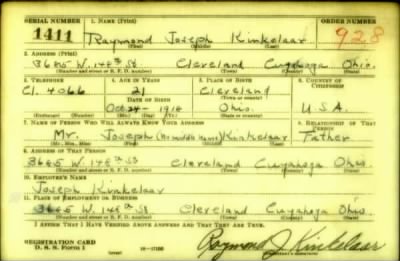 SERIAL NUMBER 1. NAME (Print) ORDER NUMBER
1411 Raymond Joseph Kinkelaar 928
(First) (Middle) (Last)
2. ADDRESS (Print)
3685 W. 148th St Cleveland Cuyahoga Ohio.
(Number and street or R. F. D. number) (Town) (County) (State)
3. TELEPHONE 4. AGE IN YEARS 5. PLACE OF BIRTH 6. COUNTRY OF CITIZENSHIP
Cl. 4066 21 Cleveland
DATE OF BIRTH (Town or county)
Oct 24- 1918 Ohio. U.S.A.
(Exchange) (Number) (Mo.) (Day) (Yr.) (State or country)
7. NAME OF PERSON WHO WILL ALWAYS KNOW YOUR ADDRESS 8. RELATIONSHIP OF THAT PERSON
Mr. Joseph (No middle name) Kinkelaar Father
(Mr., Mrs., Miss) (First) (Middle) (Last)
9. ADDRESS OF THAT PERSON
3685 W. 148th St Cleveland Cuyahoga Ohio.
(Number and street or R. F. D. number) (Town) (County) (State)
10. EMPLOYER'S NAME
Joseph Kinkelaar
11. PLACE OF EMPLOYMENT OR BUSINESS
3685 W. 148th St Cleveland Cuyahoga Ohio.
(Number and street or R. F. D. number) (Town) (County) (State)
I AFFIRM THAT I HAVE VERIFIED ABOVE ANSWERS AND THAT THEY ARE TRUE.
REGISTRATION CARD
D. S. S. Form 1 Raymond J Kinkelaar